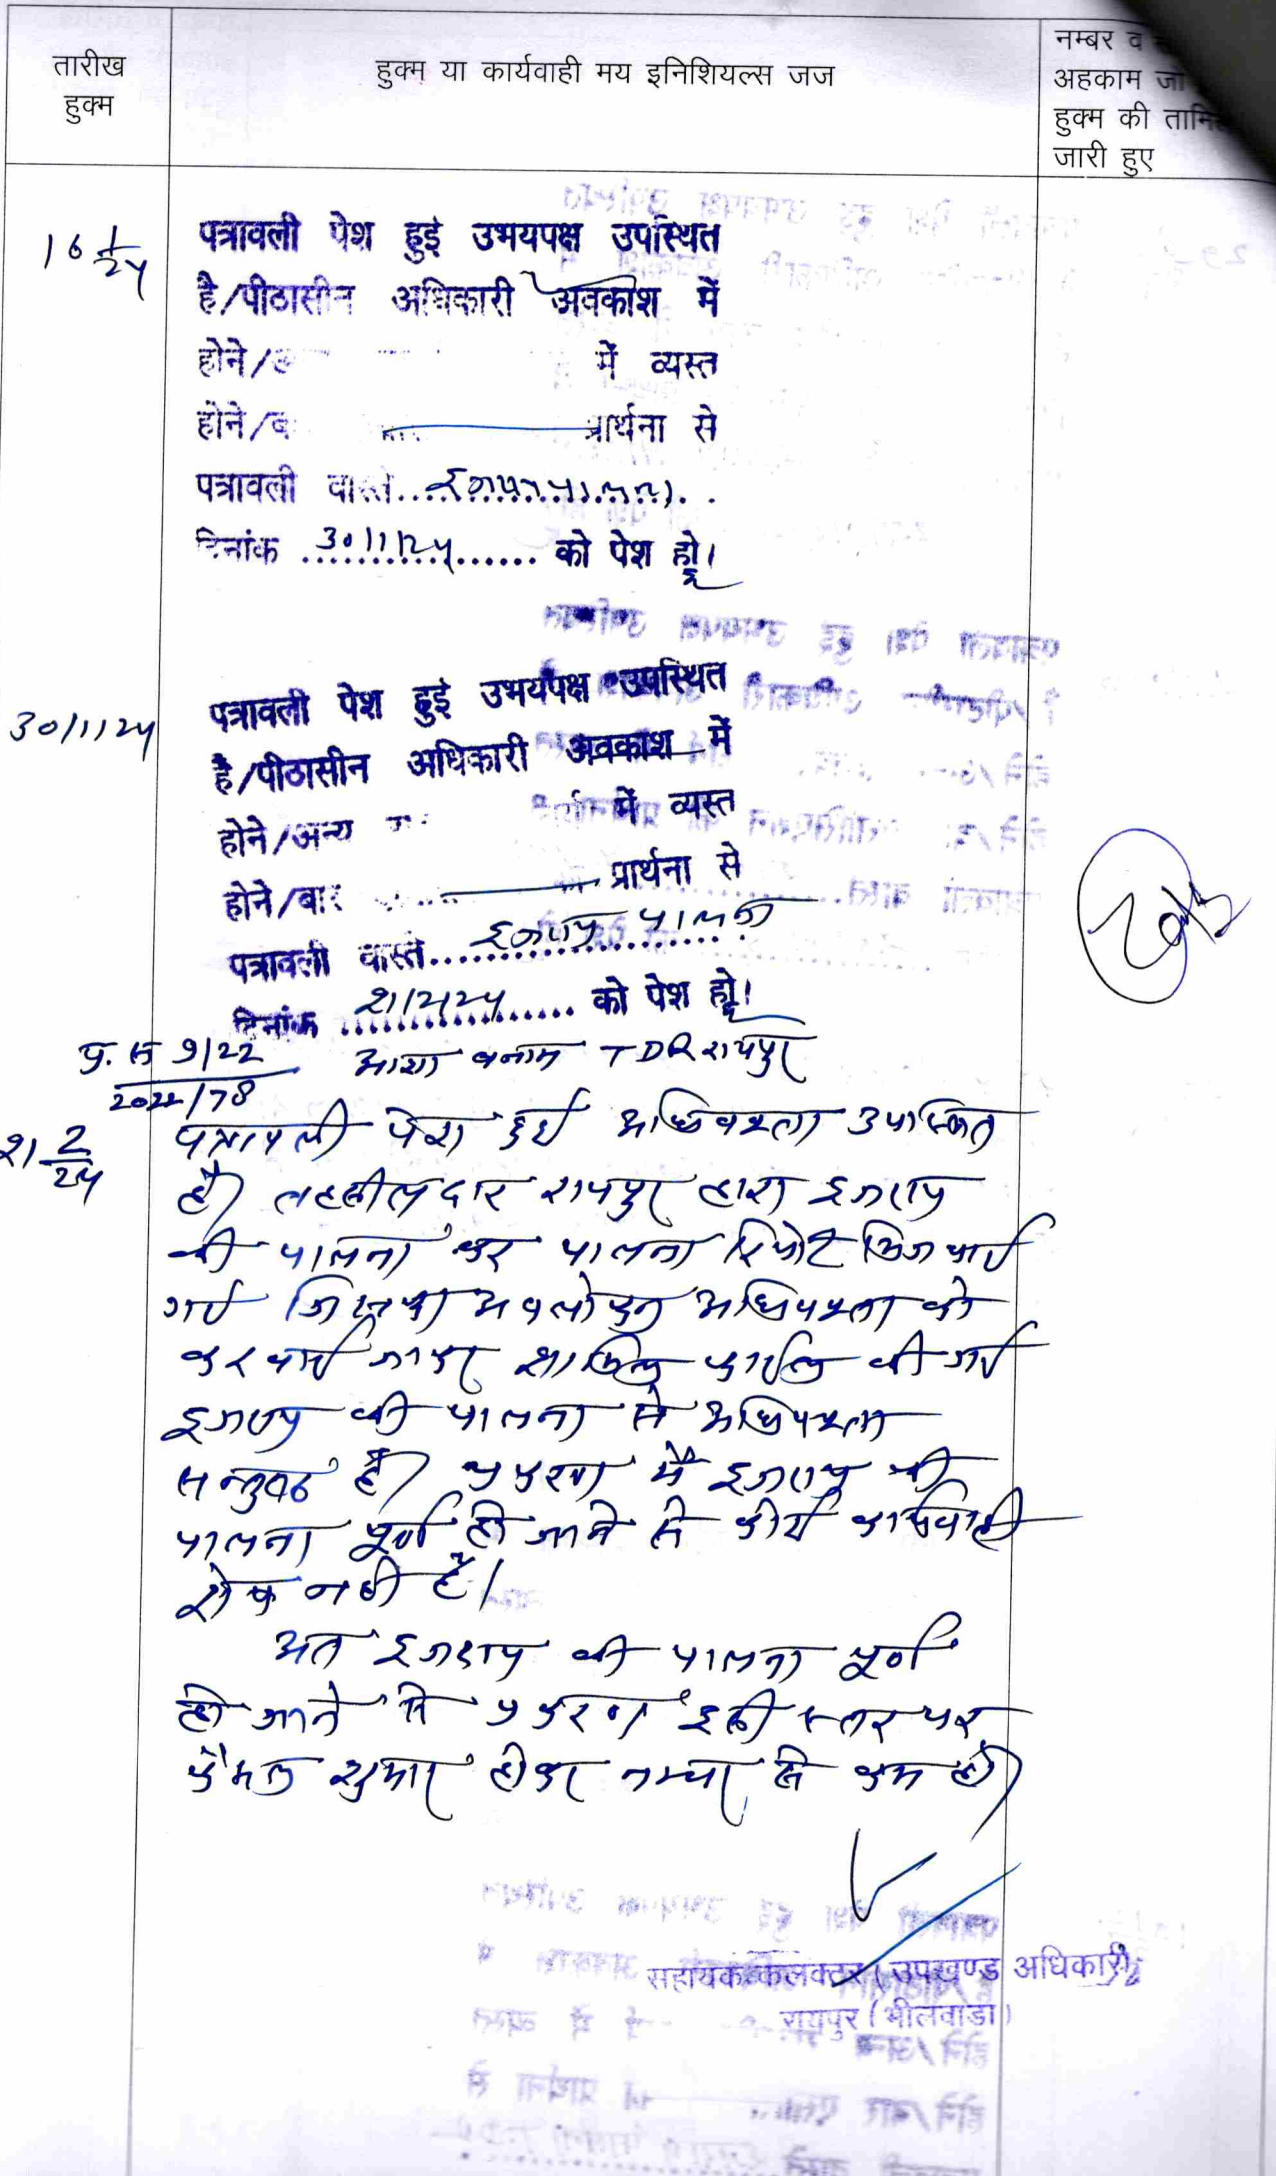 तारीख
हुक्म
हुक्म या कार्यवाही मय इनिशियल्स जज
नम्बर व
अहकाम जो
हुक्म की तामि
जारी हुए
16 1/24
पत्रावली पेश हुई उभयपक्ष उपस्थित
है/पीठासीन अधिकारी अवकाश में
होने/ में व्यस्त
होने/ प्रार्थना से
पत्रावली वास्ते इजराय पालना
दिनांक 30/1/24 को पेश हो।
30/1/24
पत्रावली पेश हुई उभयपक्ष उपस्थित
है/पीठासीन अधिकारी अवकाश में
होने/अन्य में व्यस्त
होने/बार प्रार्थना से
पत्रावली वास्ते इजराय पालना
दिनांक 21/2/24 को पेश हो।
प्र. स 9/22 आशा बनाम TDR रायपुर
2022/78
21 2/24
पत्रावली पेश हुई अधिवक्ता उपस्थित
है। तहसीलदार रायपुर द्वारा इजराय
की पालना कर पालना रिपोर्ट भिजवाई
गई जिसका अवलोकन अधिवक्ता को
करवाई जाकर शामिल फाईल की गई
इजराय की पालना से अधिवक्ता
सन्तुष्ठ है। प्रकरण में इजराय की
पालना पूर्ण हो जाने से कोई कार्यवाही
शेष नही है।
अत इजराय की पालना पूर्ण
हो जाने से प्रकरण इसी स्तर पर
फैसल शुमार होकर नम्बर से कम हो।
सहायक कलक्टर (उपखण्ड अधिकारी)
रायपुर (भीलवाडा)